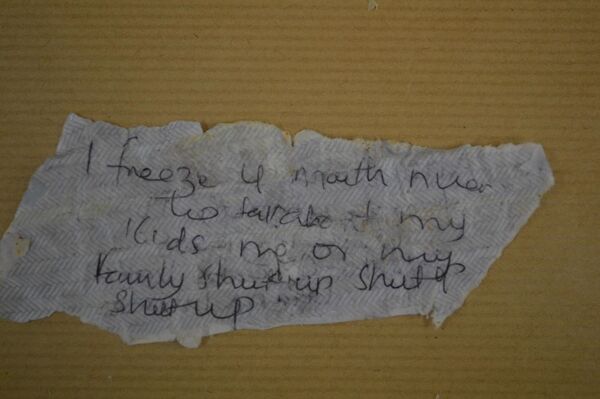 I freeze y mouth never
to talk about my
Kids me or my
Family shut up shut
shut up